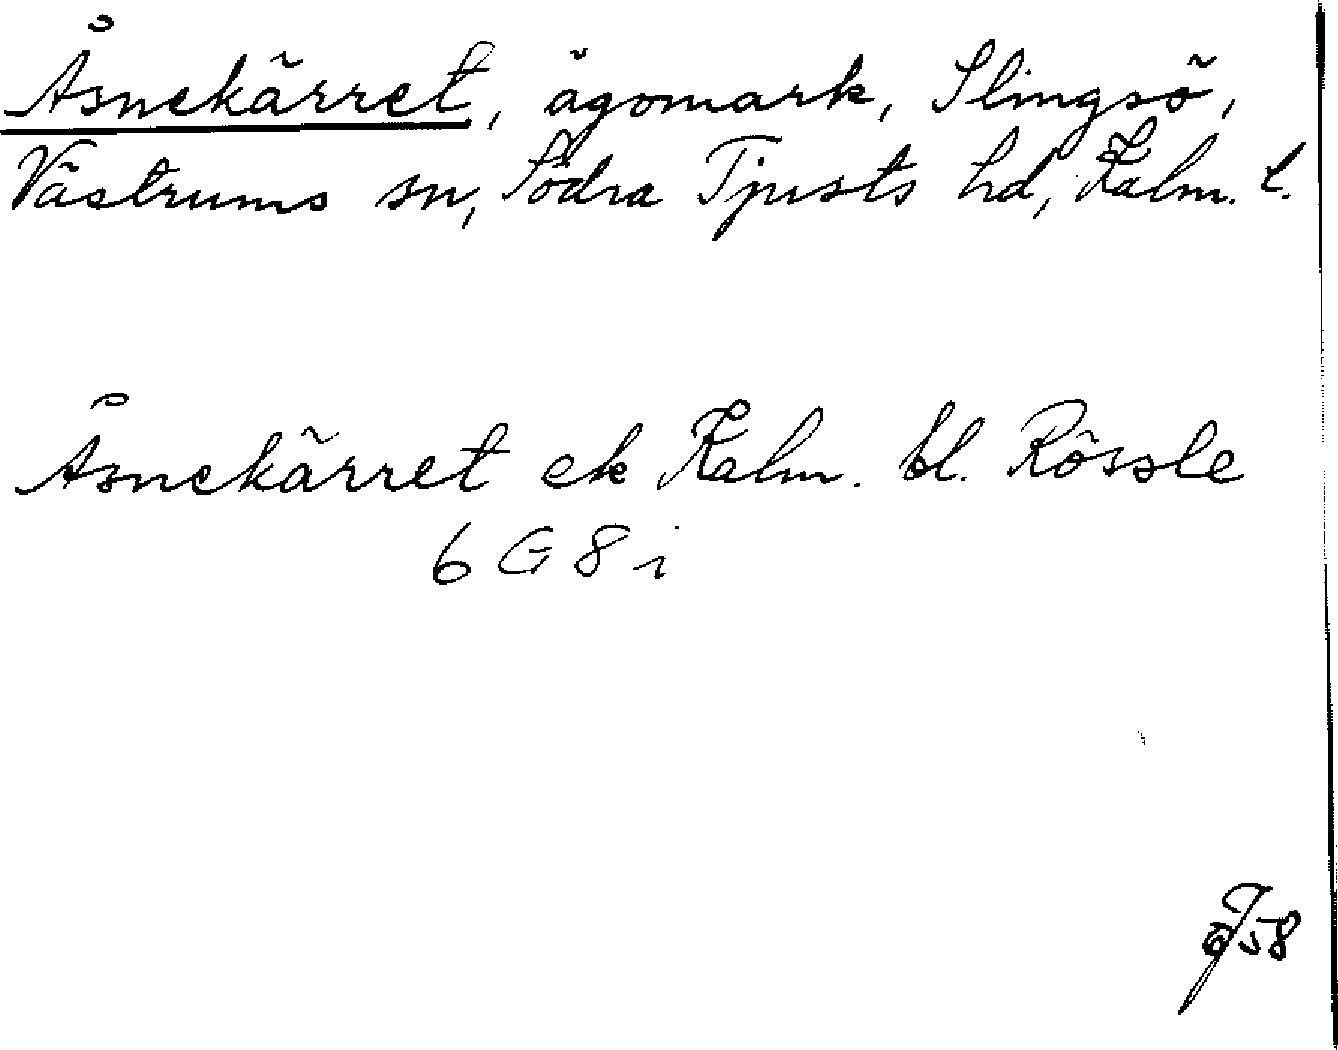 Åsnekärret, ägomark, Slingsö,
Västrums sn, Södra Tjusts hd, Kalm. l.
Åsnekärret ek Kalm. bl. Rössle
6 G 8 i
58